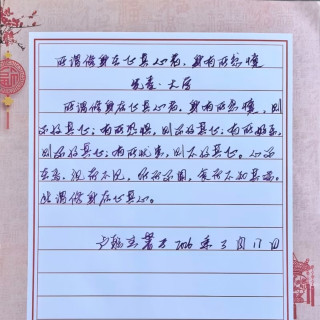 所谓修身在正其心者，身有所忿懥
先秦·大学
所谓修身在正其心者，身有所忿懥，则
不得其正；有所恐惧，则不得其正；有所好乐，
则不得其正；有所忧患，则不得其正。心不
在焉，视而不见，听而不闻，食而不知其味。
此谓修身在正其心。
3月17日